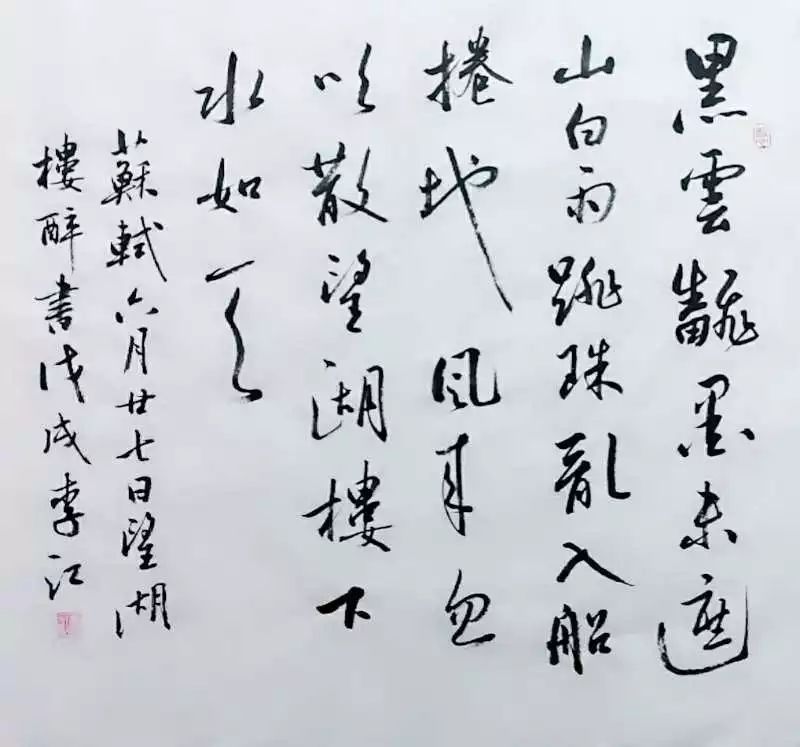 黑雲飜墨未遮
山白雨跳珠亂入船
捲地風来忽
吹散望湖樓下
水如天
蘇軾六月廿七日望湖
樓醉書戊戌李江